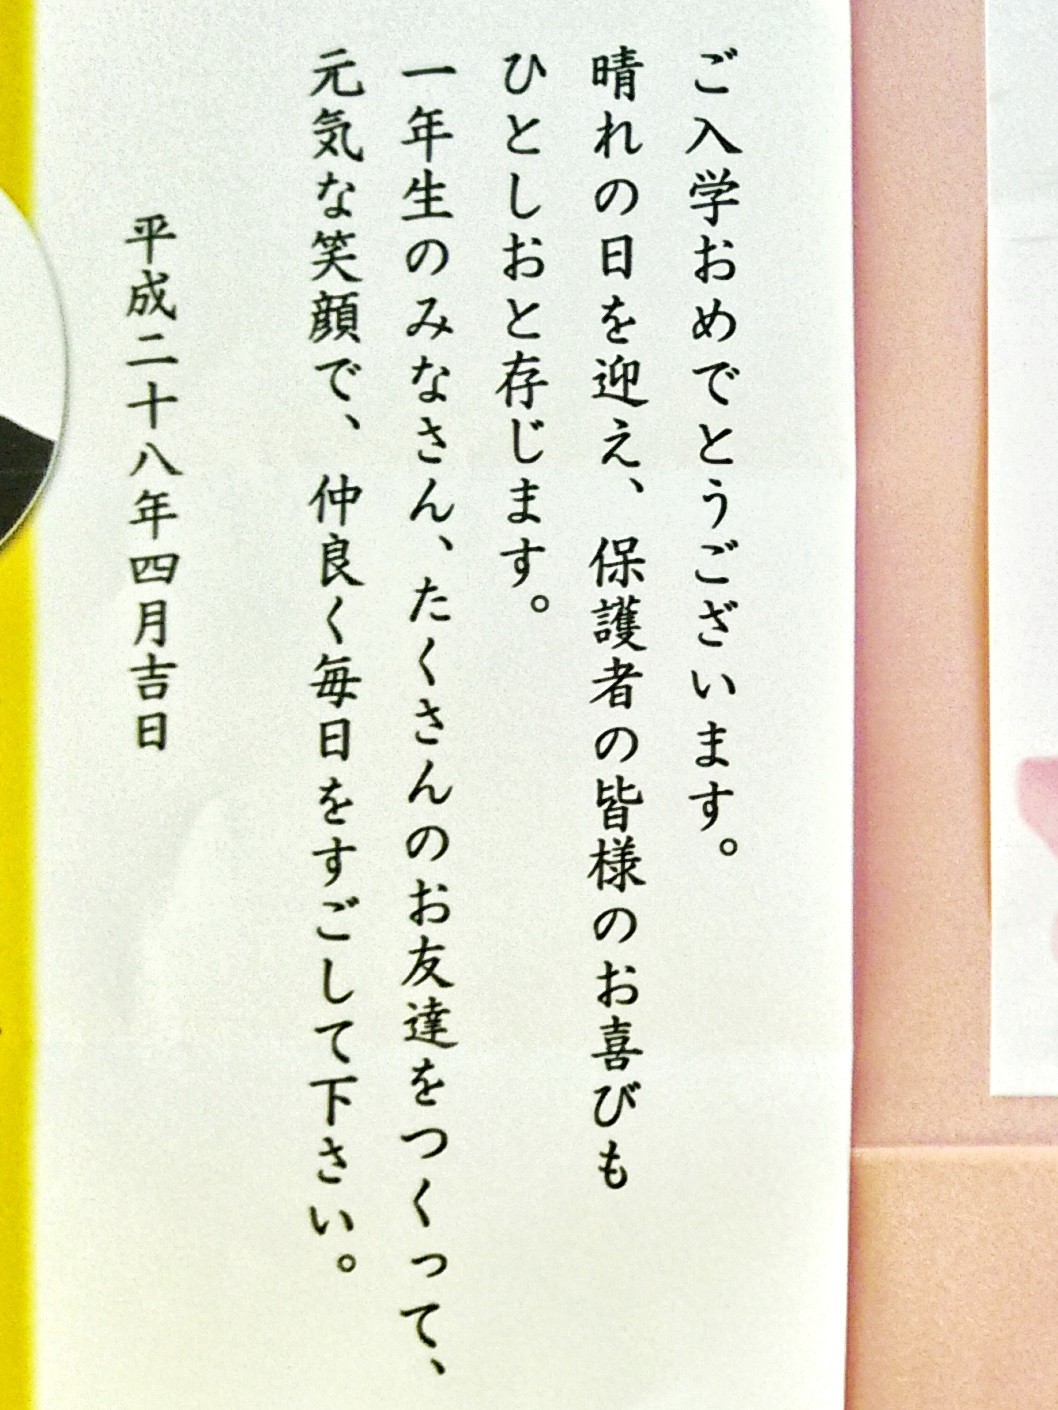 ご入学おめでとうございます。
晴れの日を迎え、保護者の皆様のお喜びも
ひとしおと存じます。
一年生のみなさん、たくさんのお友達をつくって、
元気な笑顔で、仲良く毎日をすごして下さい。
平成二十八年四月吉日